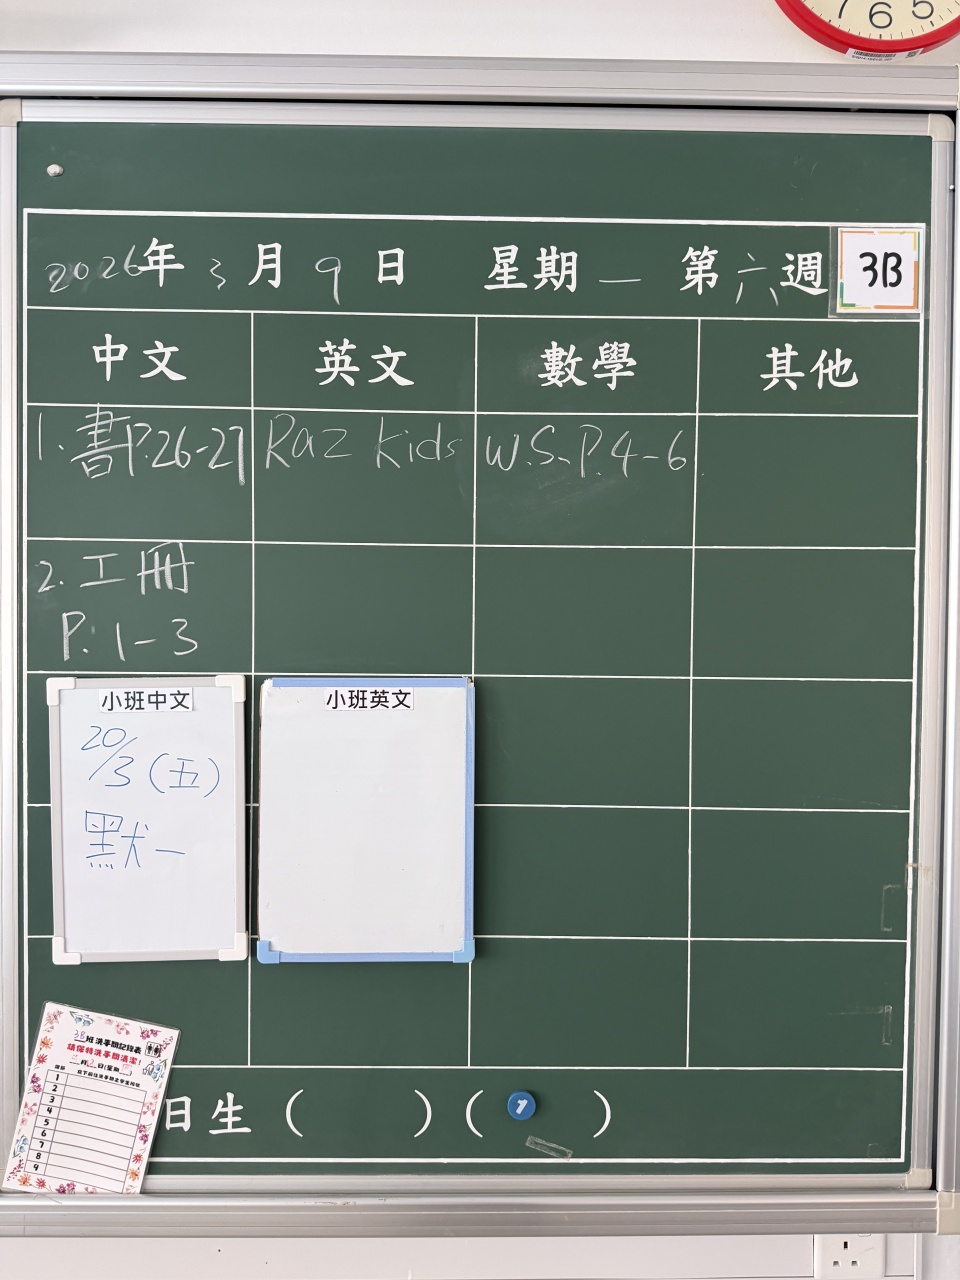 7 6 5
2026年3月9日 星期一 第六週 3B
中文 英文 數學 其他
1. 書P.26-27 Raz Kids W.S. P.4-6
2. 工冊
P. 1-3
小班中文
20/3 (五)
默一
小班英文
3B班洗手間記錄表
請保持洗手間清潔!
月 日(星期 )
1
2
3
4
5
6
7
8
9
日生 ( ) ( 1 )